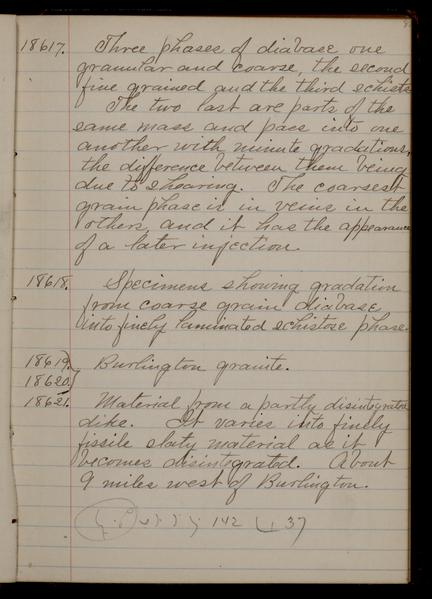 18617. Three phases of diabase one
granular and coarse, the second
fine grained and the third schists
The two last are parts of the
same mass and pass into one
another with minute gradations,
the difference between them being
due to shearing. The coarsest
grain phase is in veins in the
others, and it has the appearance
of a later injection.
18618. Specimens showing gradation
from coarse grain diabase
into finely laminated schistose phase.
18619. Burlington granite.
18620.
18621. Material from a partly disintegrated
dike. It varies into finely
fissile slaty material as it
becomes disintegrated. About
9 miles west of Burlington.
142 37